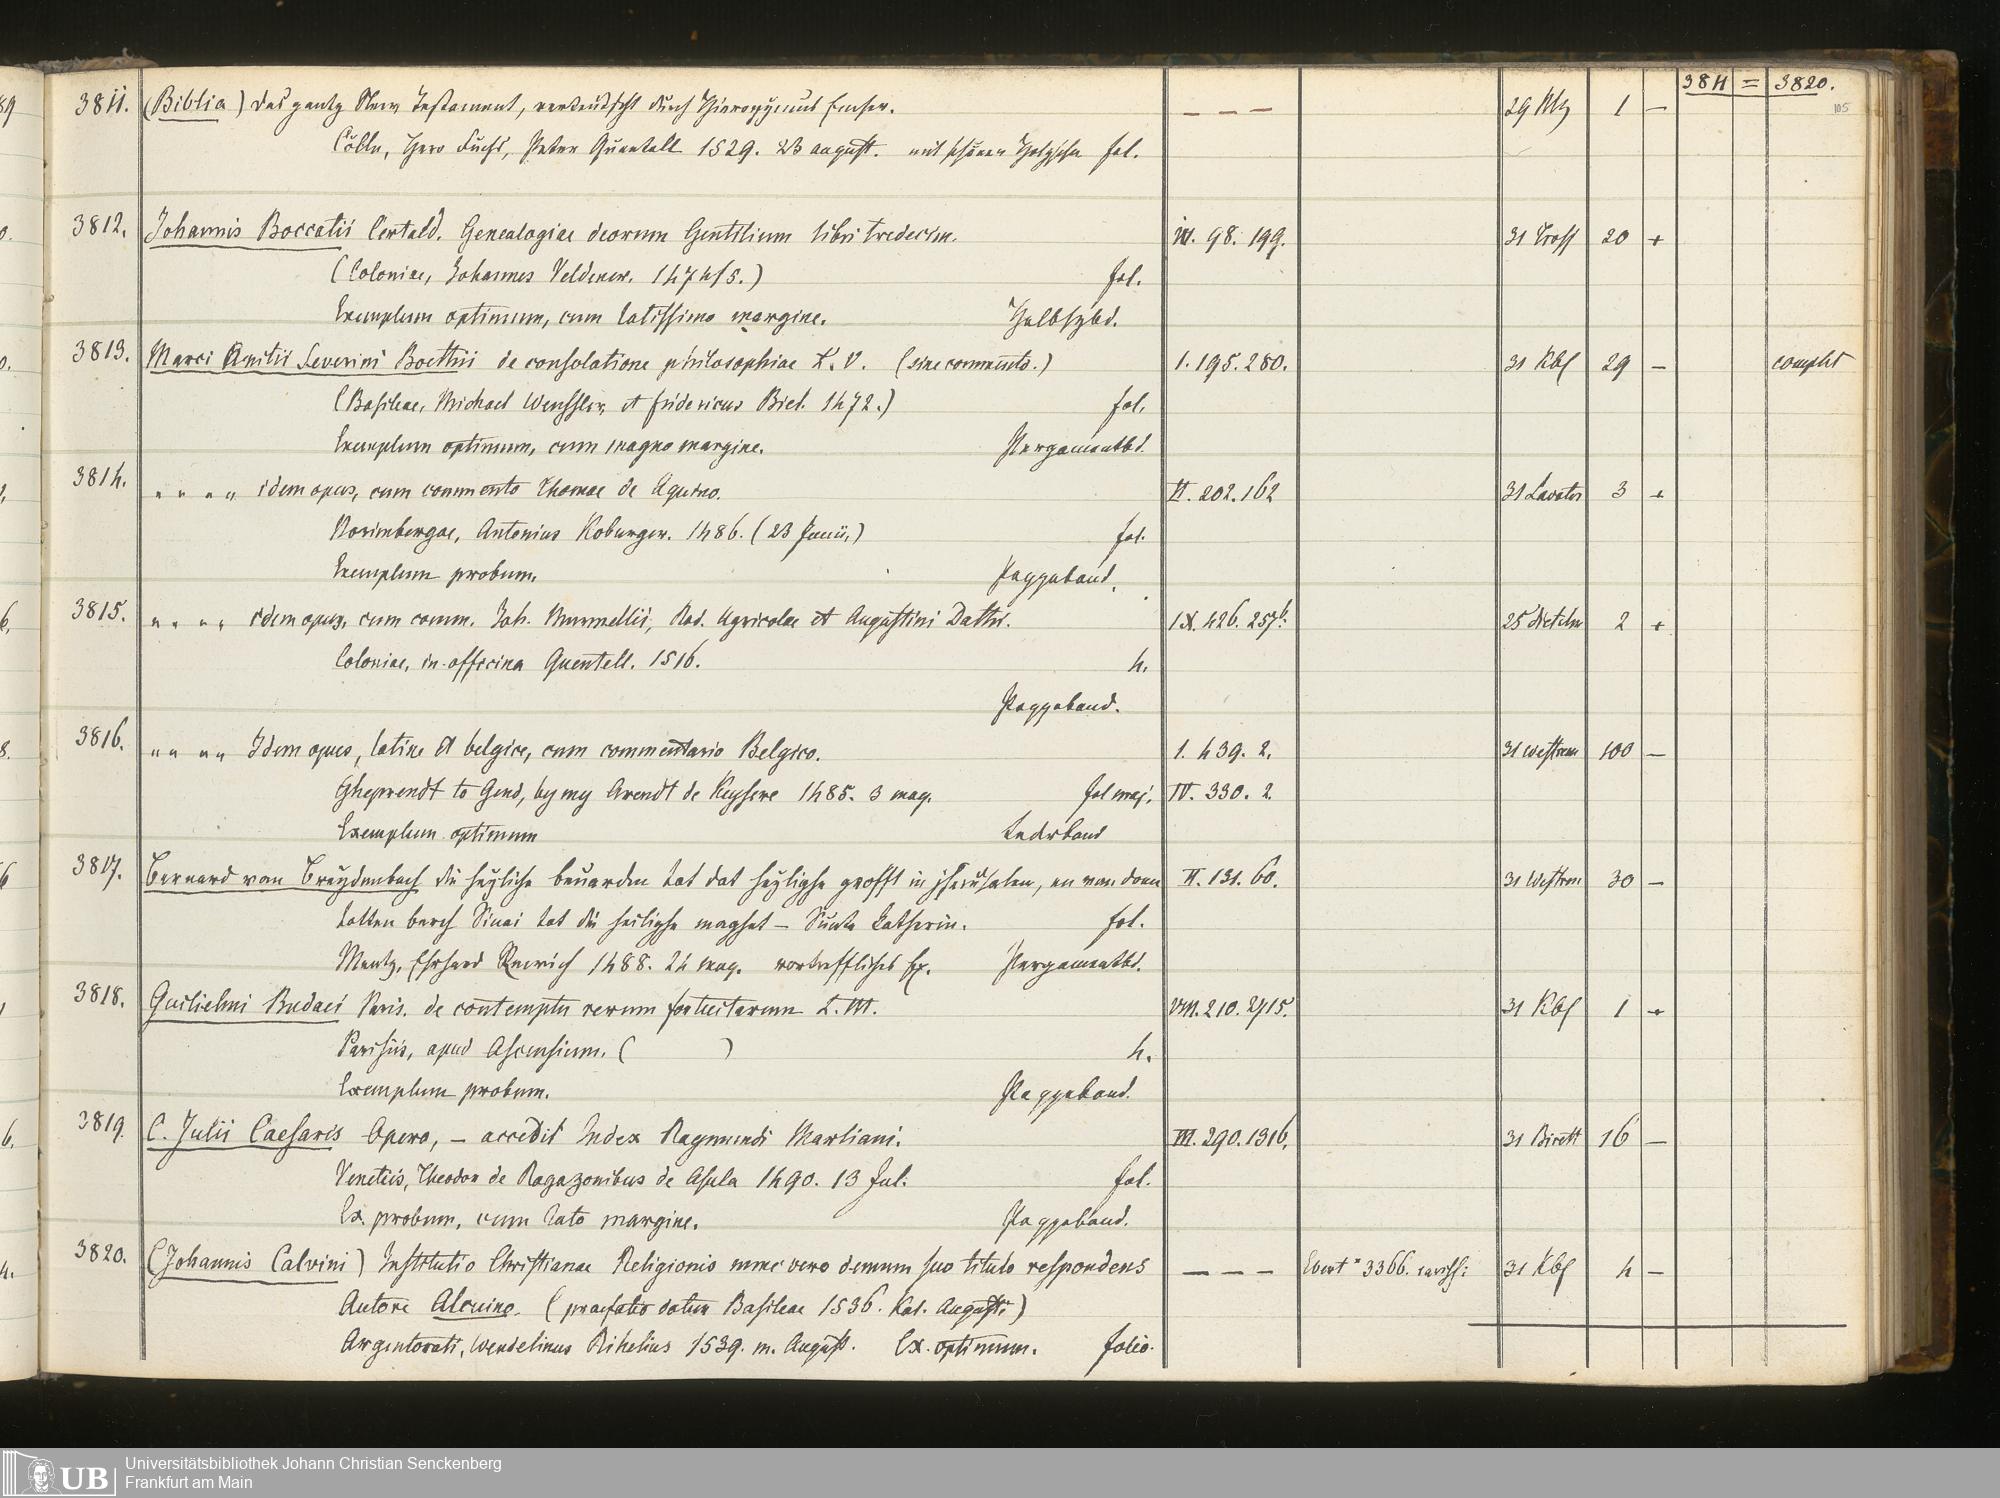 3811 = 3820.
105
3811. (Biblia) das gantz New Testament, verteutscht durch Hieronymus Emser. — — — 29 1 —
Cölln, Hero Fuchs, Peter Quentell 1529. 23 august. mit schönen Holzschn fol.
3812. Johannis Boccatii Certald. Genealogiae deorum Gentilium libri tredecim. IV. 98. 199. 31 Pross 20 +
(Coloniae, Johannes Veldener. 1474/5.) fol.
Exemplum optimum, cum latissimo margine. Halbfzbd.
3813. Marci Anitii Severini Boethii de consolatione philosophiae L. V. (sine commento.) I. 195. 280. 31 Kbf 29 — complet
(Basileae, Michael Wenssler, et fridericus Biel. 1472.) fol.
Exemplum optimum, cum magno margine. Pergamentbd.
3814. „ „ „ „ idem opus, cum commento Thomae de Aquino. VI. 202. 162 31 Lavater 3 +
Norimbergae, Antonius Koburger. 1486. (23 Junii.) fol.
Exemplum probum. Pappband.
3815. „ „ „ „ idem opus, cum comm. Joh. Murmellii, Rod. Agricolae et Augustini Dathi. IX. 426. 257b. 25 2 +
Coloniae, in officina Quentell. 1516. 4.
Pappband.
3816. „ „ „ „ Idem opus, latine et belgice, cum commentario Belgico. I. 439. 2. 31 Westrem 100 —
Gheprendt te Gend, by my Arendt de Keysere 1485. 3 may. fol maj. IV. 330. 2.
Exemplum optimum Lederband
3817. Bernard van Breydenbach die heyliche beuarden tot dat heylighe grafft in jherusalem, en van daen VI. 131. 60. 31 Westrem 30 —
totten berch Sinai tot die heilighe maghet — Sunte Katherin. fol.
Mentz, Ehrhard Rewich 1488. 24 may. vortreffliches Ex. Pergamentbd.
3818. Guilielmi Budaei Paris. de contemptu rerum fortuitarum L. III. VIII. 210. 2415. 31 Kbf 1 +
Parisiis, apud Ascensium. ( ) 4.
Exemplum probum. Pappband.
3819. C. Julii Caesaris Opera, — accedit Index Raymundi Marliani. III. 290. 1316. 31 Birett 16 —
Venetiis, Theodor de Ragazonibus de Asula 1490. 13 Jul. fol.
Ex. probum, cum lato margine. Pappband.
3820. (Johannis Calvini) Institutio Christianae Religionis nunc vero demum suo titulo respondens — — — Ebert n 3366. rariss: 31 Kbf 4 —
Autore Alcuino. (praefatio datum Basileae 1536. Kal. Augusti)
Argentorati, Wendelinus Rihelius 1539. m. August. Ex. optimum. folio.
UB
Universitätsbibliothek Johann Christian Senckenberg
Frankfurt am Main